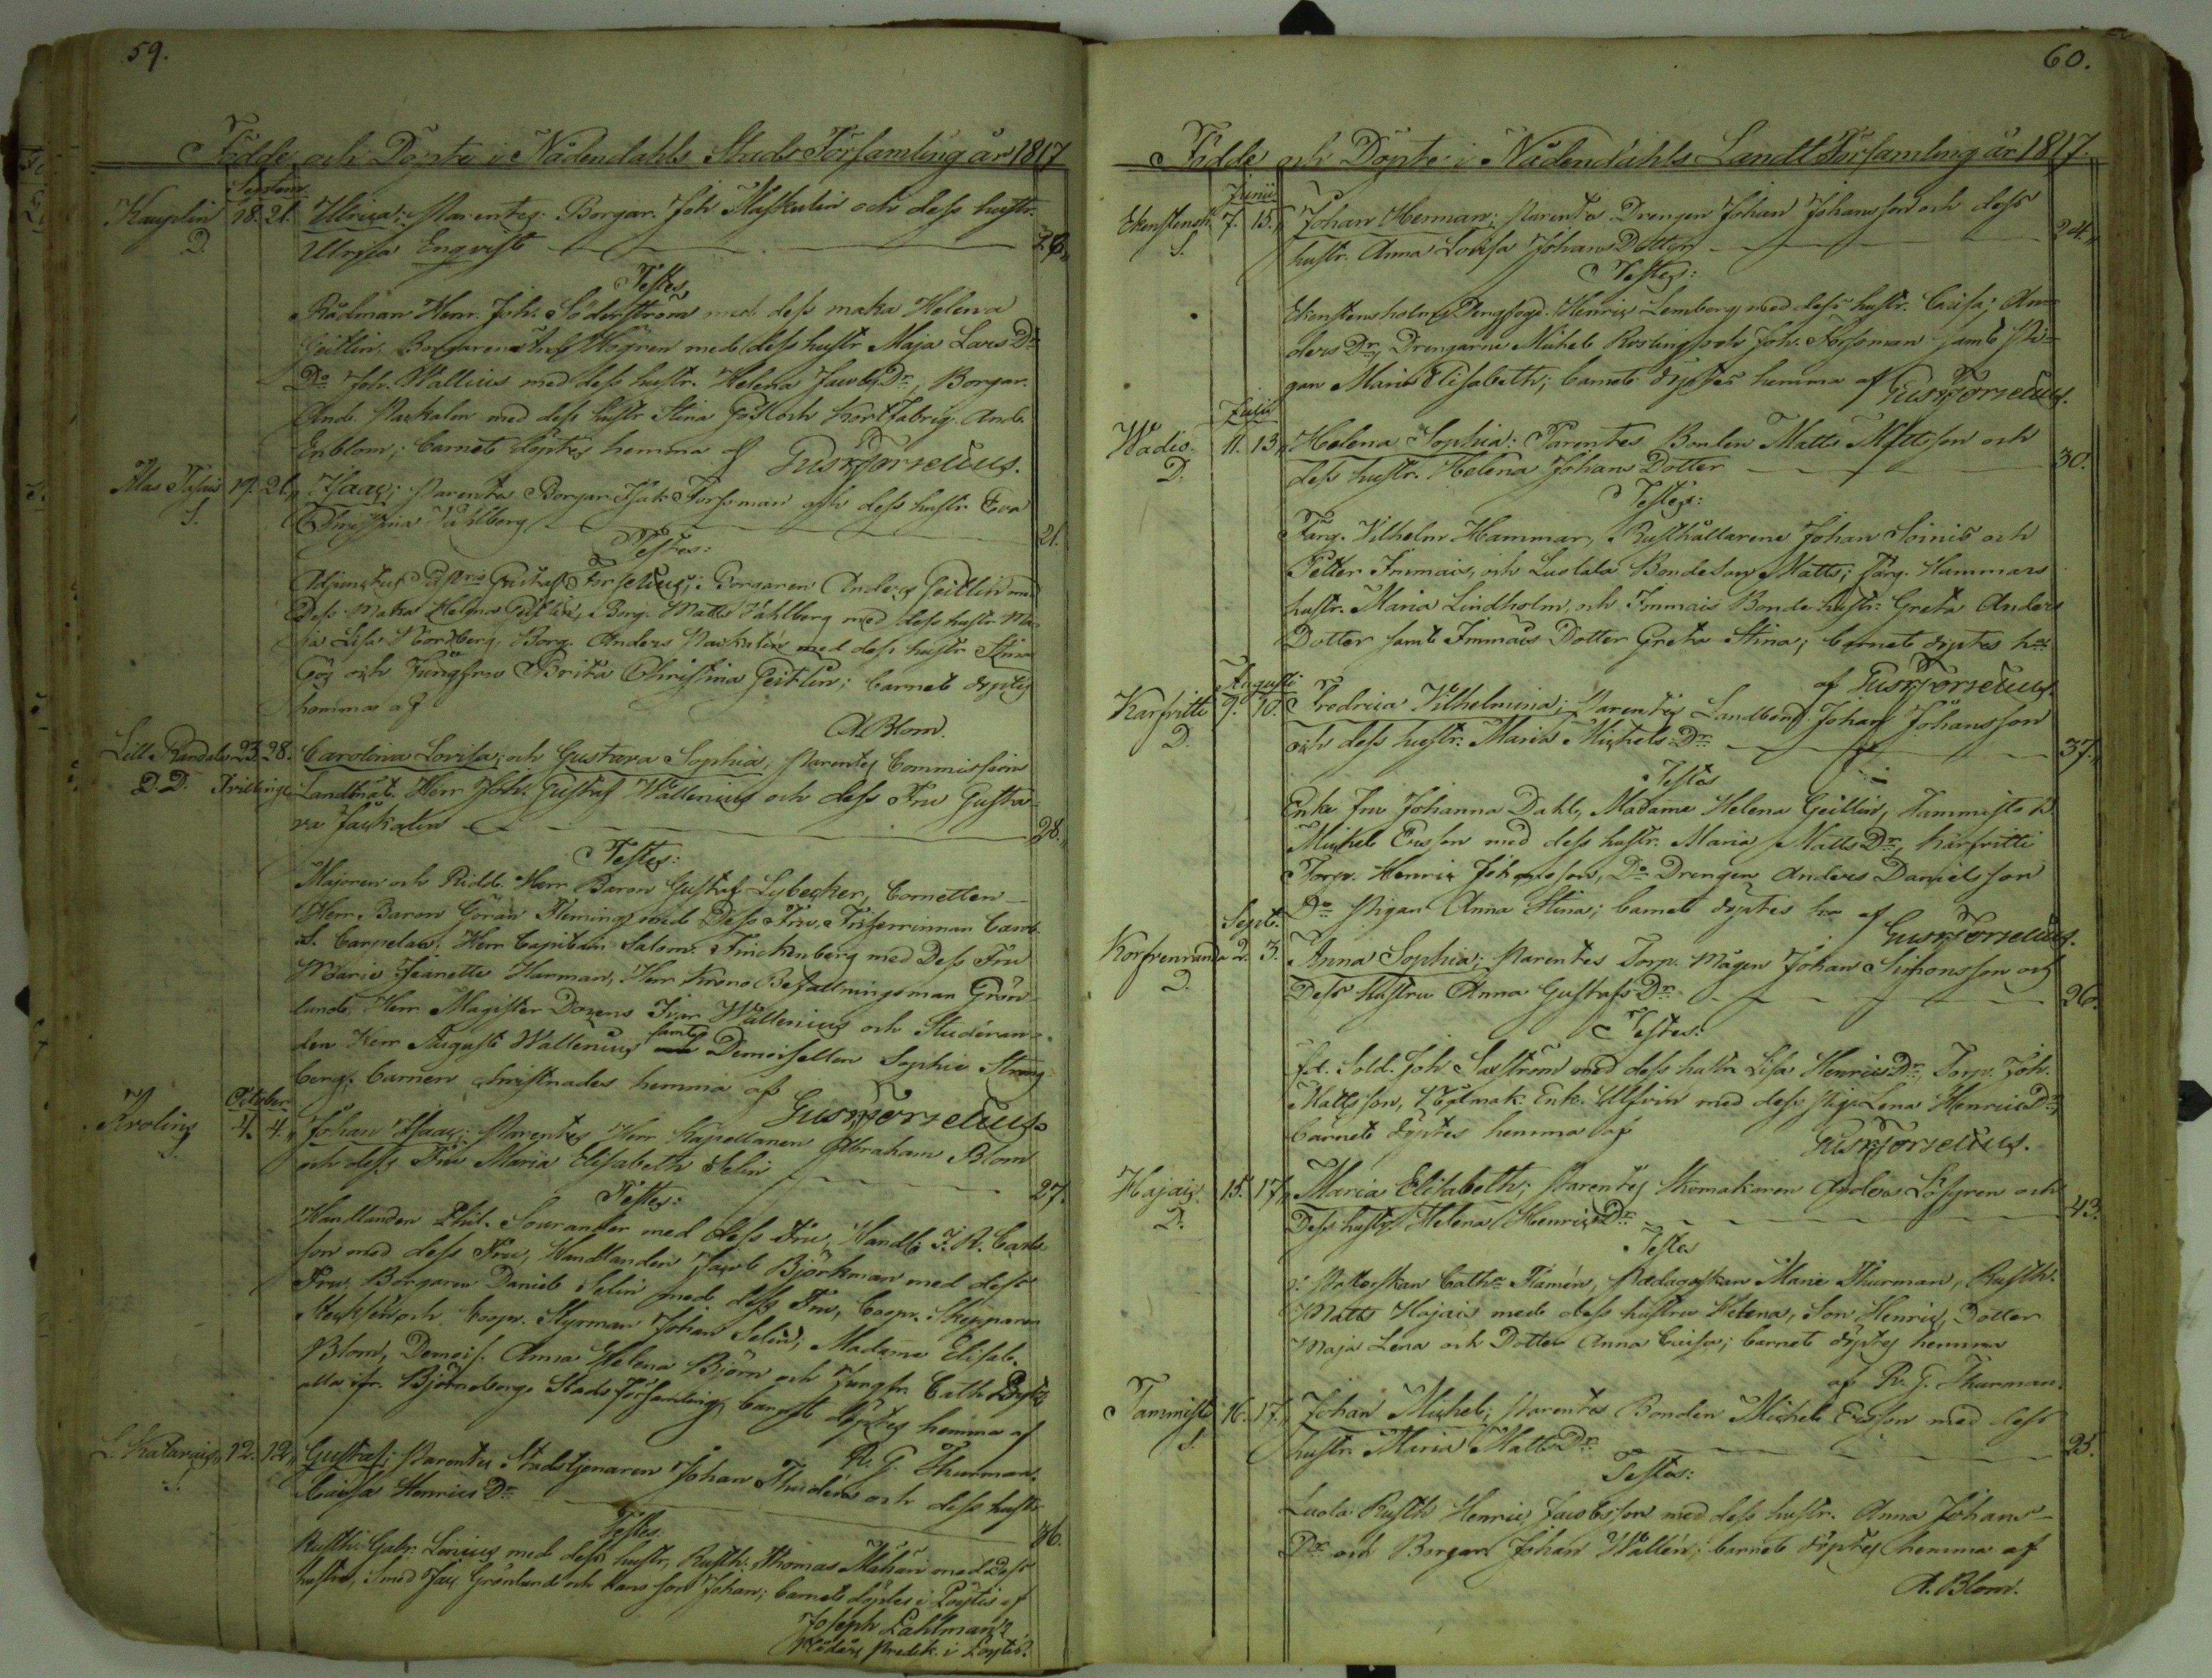 59.
Födde och Döpte i Nådendahls Stads Församling år 1817
Septem.
Kauplin 18. 21. Ulrica; Parentes: Borgar. Joh Paskulin och dess hustr.
D. Ulrica Enqvist 28.
Testes
Rådman Herr. Joh. Söderström med dess maka Helena
Geitlin, Borgaren Högren med dess hustr Maja Lars Dr
Do Joh. Wallius med dess hustr. Helena Jacobs Dr, Borgar.
And. Paskulin med dess hustr Stina Göös och Kortfabriq. And.
Enblom; barnet döptes hemma af Gust Forselius.
19. 21. Isaac; Parentes Borgar. Isak Forssman och dess hustr. Eva
S. Christina Wahlberg 21.
Testes:
Adjunctus Pastoris Gustaf Forselius; Borgaren Anders Geitlin med
Dess Maka Helena Geitlin, Borg. Matts Wahlberg med dess hustr. Ma-
ja Lisa Nordberg, Borg. Anders Paskulin med dess hustr. Stina
Göös och Jungfru Brita Christina Geitlin; barnet döptes
hemma af
A. Blom.
Lill Randala 23. 28. Carolina Lovisa, och Gustava Sophia, Parentes Commissions
D.D. Tvillingar Landtmät. Herr Joh. Gustaf Wallenius och dess Fru Gusta-
va 28.
Testes:
Majoren och Ridd. Herr Baron Gustaf Lybecker, Cornetten
Herr Baron Göran Fleming med Dess Fru, Friherrinnan Carol.
S. Carpelan, Herr Capitain Salom. Finckenberg med Dess Fru
Maria Jeanette Harman, Herr Krono Befallningsman Grön-
lund, Herr Magister Docens Ivar Wallenius och Studeran-
den Herr August Wallenius samt Demoisellen Sophie Strang
berg; barnen christnades hemma af
Gust Forselius.
October
4. 4. Johan Isaac; Parentes Herr Kapellanen Abraham Blom
och dess Fru Maria Elisabeth Selin 27.
Testes:
Handlanden Phil. Sourander med dess Fru, Handl. J. A. Carls
son med dess Fru, Handlanden Jacob Björkman med dess
Fru, Borgaren Daniel Selin med dess Fru, Coop. Skepparen
och Coop. Styrman Johan Selin, Madame Elisab.
Blom, Demois. Anna Helena Björn och Jungfr. Cath
alla ifr. Björneborgs Stads Församling, barnet döptes hemma af
R. G. Thurman.
12. 12. Gustaf; Parentes Stadstjenaren Johan Thudén och dess hustr
S. Caisa Henrics Dr 36.
Testes.
Rusth. Gabr. Lenius med dess hustr, Rusth. Thomas Mähäri med Dess
hustru, Smed Jac. Grönlund och hans son Johan; barnet döptes i Pöytis af
Joseph Lahlman
Predik. i Pöytis.
60.
Födde och Döpte i Nådendahls Landt Församling år 1817.
Junii
Ekenstensh. 7. 15. Johan Herman; Parentes Drengen Johan Johansson och dess
S. hustr. Anna Lovisa Johans Dotter 24.
Testes:
Ekenstensholms Henric Lemberg med dess hustr. Caisa; An-
ders Dr, Drengarne Michel Rosling och Joh. Forssman samt Pi-
gan Maria Elisabeth; barnet döptes hemma af Gust Forselius.
Julii
Wadis 11. 13. Helena Sophia: Parentes Bonden Matts Mattsson och
D. dess hustr. Helena Johans Dotter 30.
Testes:
Färg. Vilhelm Hammar, Rusthållarena Johan Soinis och
Petter Immais, och Luolala Bondeson Matts; Färg. Hammars
hustr. Maria Lindholm, och Immais Bonde hustr: Greta Anders
Dotter samt Immais Dotter Greta Stina; barnet döptes hem
af Gust Forselius.
Augusti
Karfvitti 9. 10. Fredrica Vilhelmina; Parentes Landbond. Johan Johansson
D. och dess hustr. Maria Michels Dr 37.
Testes
Enke Fru Johanna Dahl, Madame Helena Geitlin, Tammisto B.
Michel Ericsson med dess hustr. Maria Matts Dr, Karfvitti
Torpr. Henric Johansson, Do Drengen Anders Danielsson
Do Pigan Anna Stina; barnet döptes hem af
Gust Forselius.
Sept.
2. 3. Anna Sophia; Parentes Torp. Mågen Johan Simonsson och
D. Dess hustru Anna Gustafs Dr 26.
Testes:
fd. Sold. Joh. Saxström med dess hustr Lisa Henrics Dr, Torp. Joh.
Mattsson, Enk. med dess Piga Lena Henrics Dr;
barnet döptes hemma af
Gust Forselius.
Hajais 15. 17. Maria Elisabeth; Parentes Skomakaren Anders Löfgren och
D. Dess hustr Helena Henrics Dr 43.
Testes
Cathr Flamén, Pædagoskan Maria Thurman, Rusth.
Matts Hajais med dess hustru Helena, Son Henric, Dotter
Maja Lena och Dotter Anna Caisa; barnet döptes hemma
af R. G. Thurman.
Tammisto 16. 17. Johan Michel; Parentes Bonden Michel Ericsson med dess
S. hustr. Maria Matts Dr 25.
Testes:
Luola Rusth Henric Jacobsson med dess hustr. Anna Johans
Dr och Borgar. Johan Wallén; barnet döptes hemma af
A. Blom.